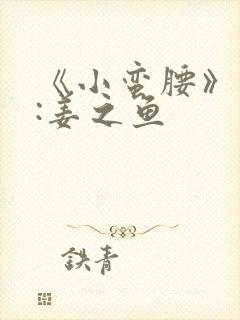 《小蛮腰》
:姜之鱼
鉄青